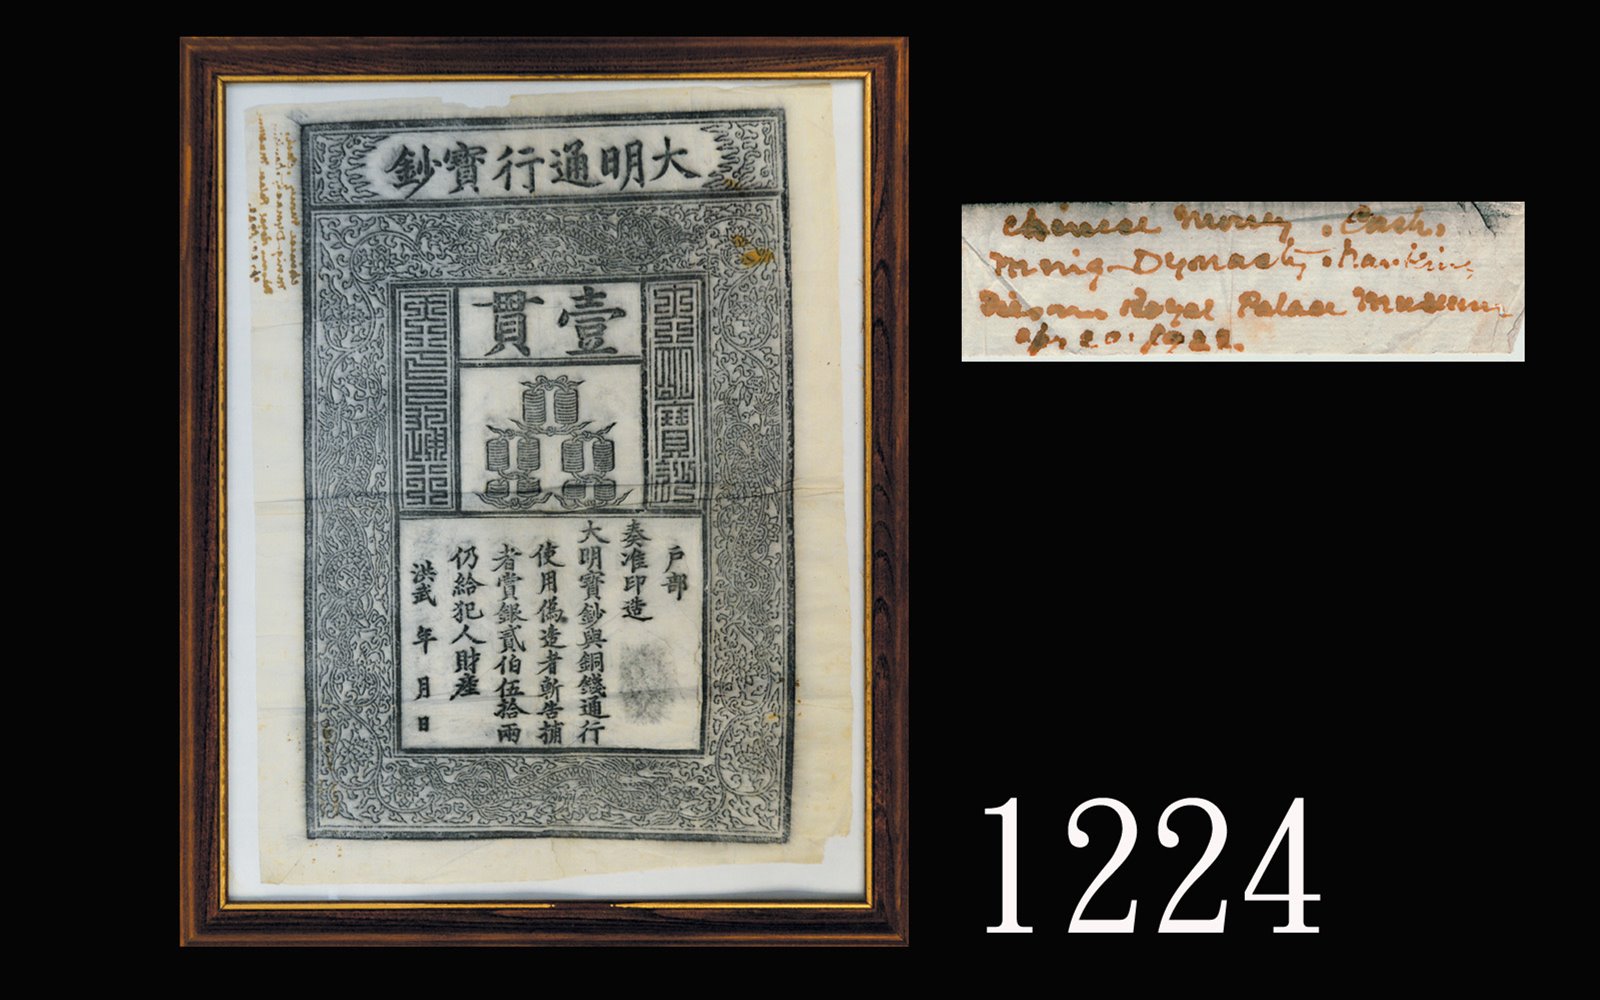 大明通行寶鈔
壹貫
大明寶鈔
天下通行
户部
奏准印造
大明寶鈔與銅錢通行
使用偽造者斬告捕
者賞銀貳伯伍拾兩
仍給犯人財產
洪武 年 月 日
Chinese Money . Cash.
Ming Dynasty .
Royal Palace Museum
Apr 20. 1922.
1224